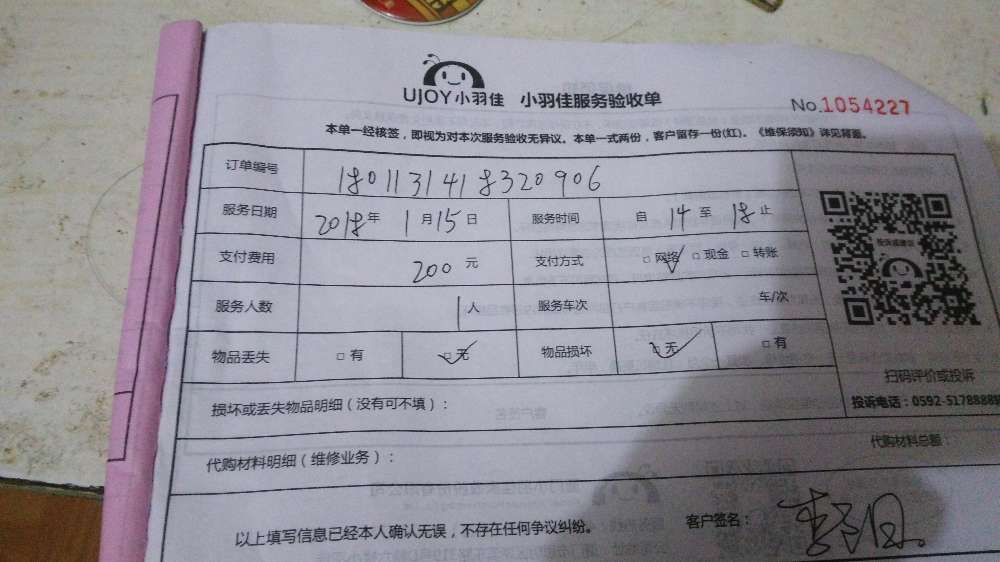 UJOY小羽佳 小羽佳服务验收单
No.1054227
本单一经核签，即视为对本次服务验收无异议。本单一式两份，客户留存一份(红)。《维保须知》详见背面。
订单编号 1801131418320906
服务日期 2018年 1月15日 服务时间 自 14 至 18 止
支付费用 200元 支付方式 □网络 □现金 □转账
服务人数 1人 服务车次 车/次
物品丢失 □有 □无 物品损坏 □无 □有
扫码评价或投诉
损坏或丢失物品明细（没有可不填）：
投诉电话：0592-5178888
代购材料明细（维修业务）：
代购材料总额：
以上填写信息已经本人确认无误，不存在任何争议纠纷。
客户签名：